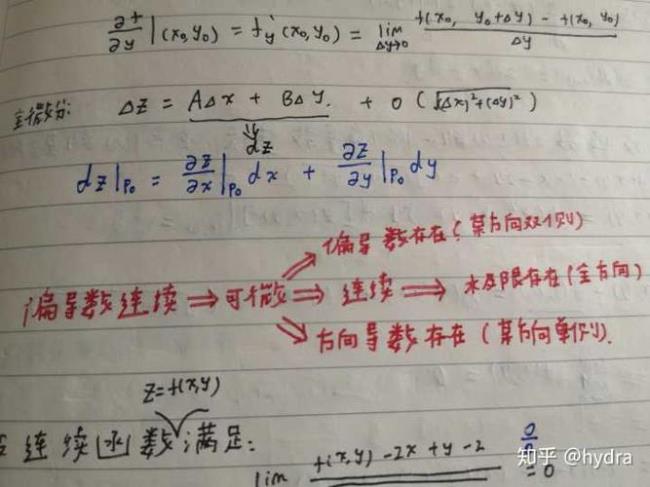 ∂f/∂y|(x₀,y₀) = f'y(x₀,y₀) = lim Δy→0 f(x₀, y₀+Δy) - f(x₀, y₀) / Δy
全微分: Δz = AΔx + BΔy. + o(√(Δx)²+(Δy)²)
⇓ dz
dz|P₀ = ∂z/∂x|P₀ dx + ∂z/∂y|P₀ dy
偏导数存在(某方向双侧)
偏导数连续 ⇒ 可微 ⇒ 连续 ⇒ 极限存在(全方向)
方向导数存在(某方向单侧).
z=f(x,y)
连续函数满足:
lim f(x,y)-2x+y-2 0/0 =0
知乎 @hydra